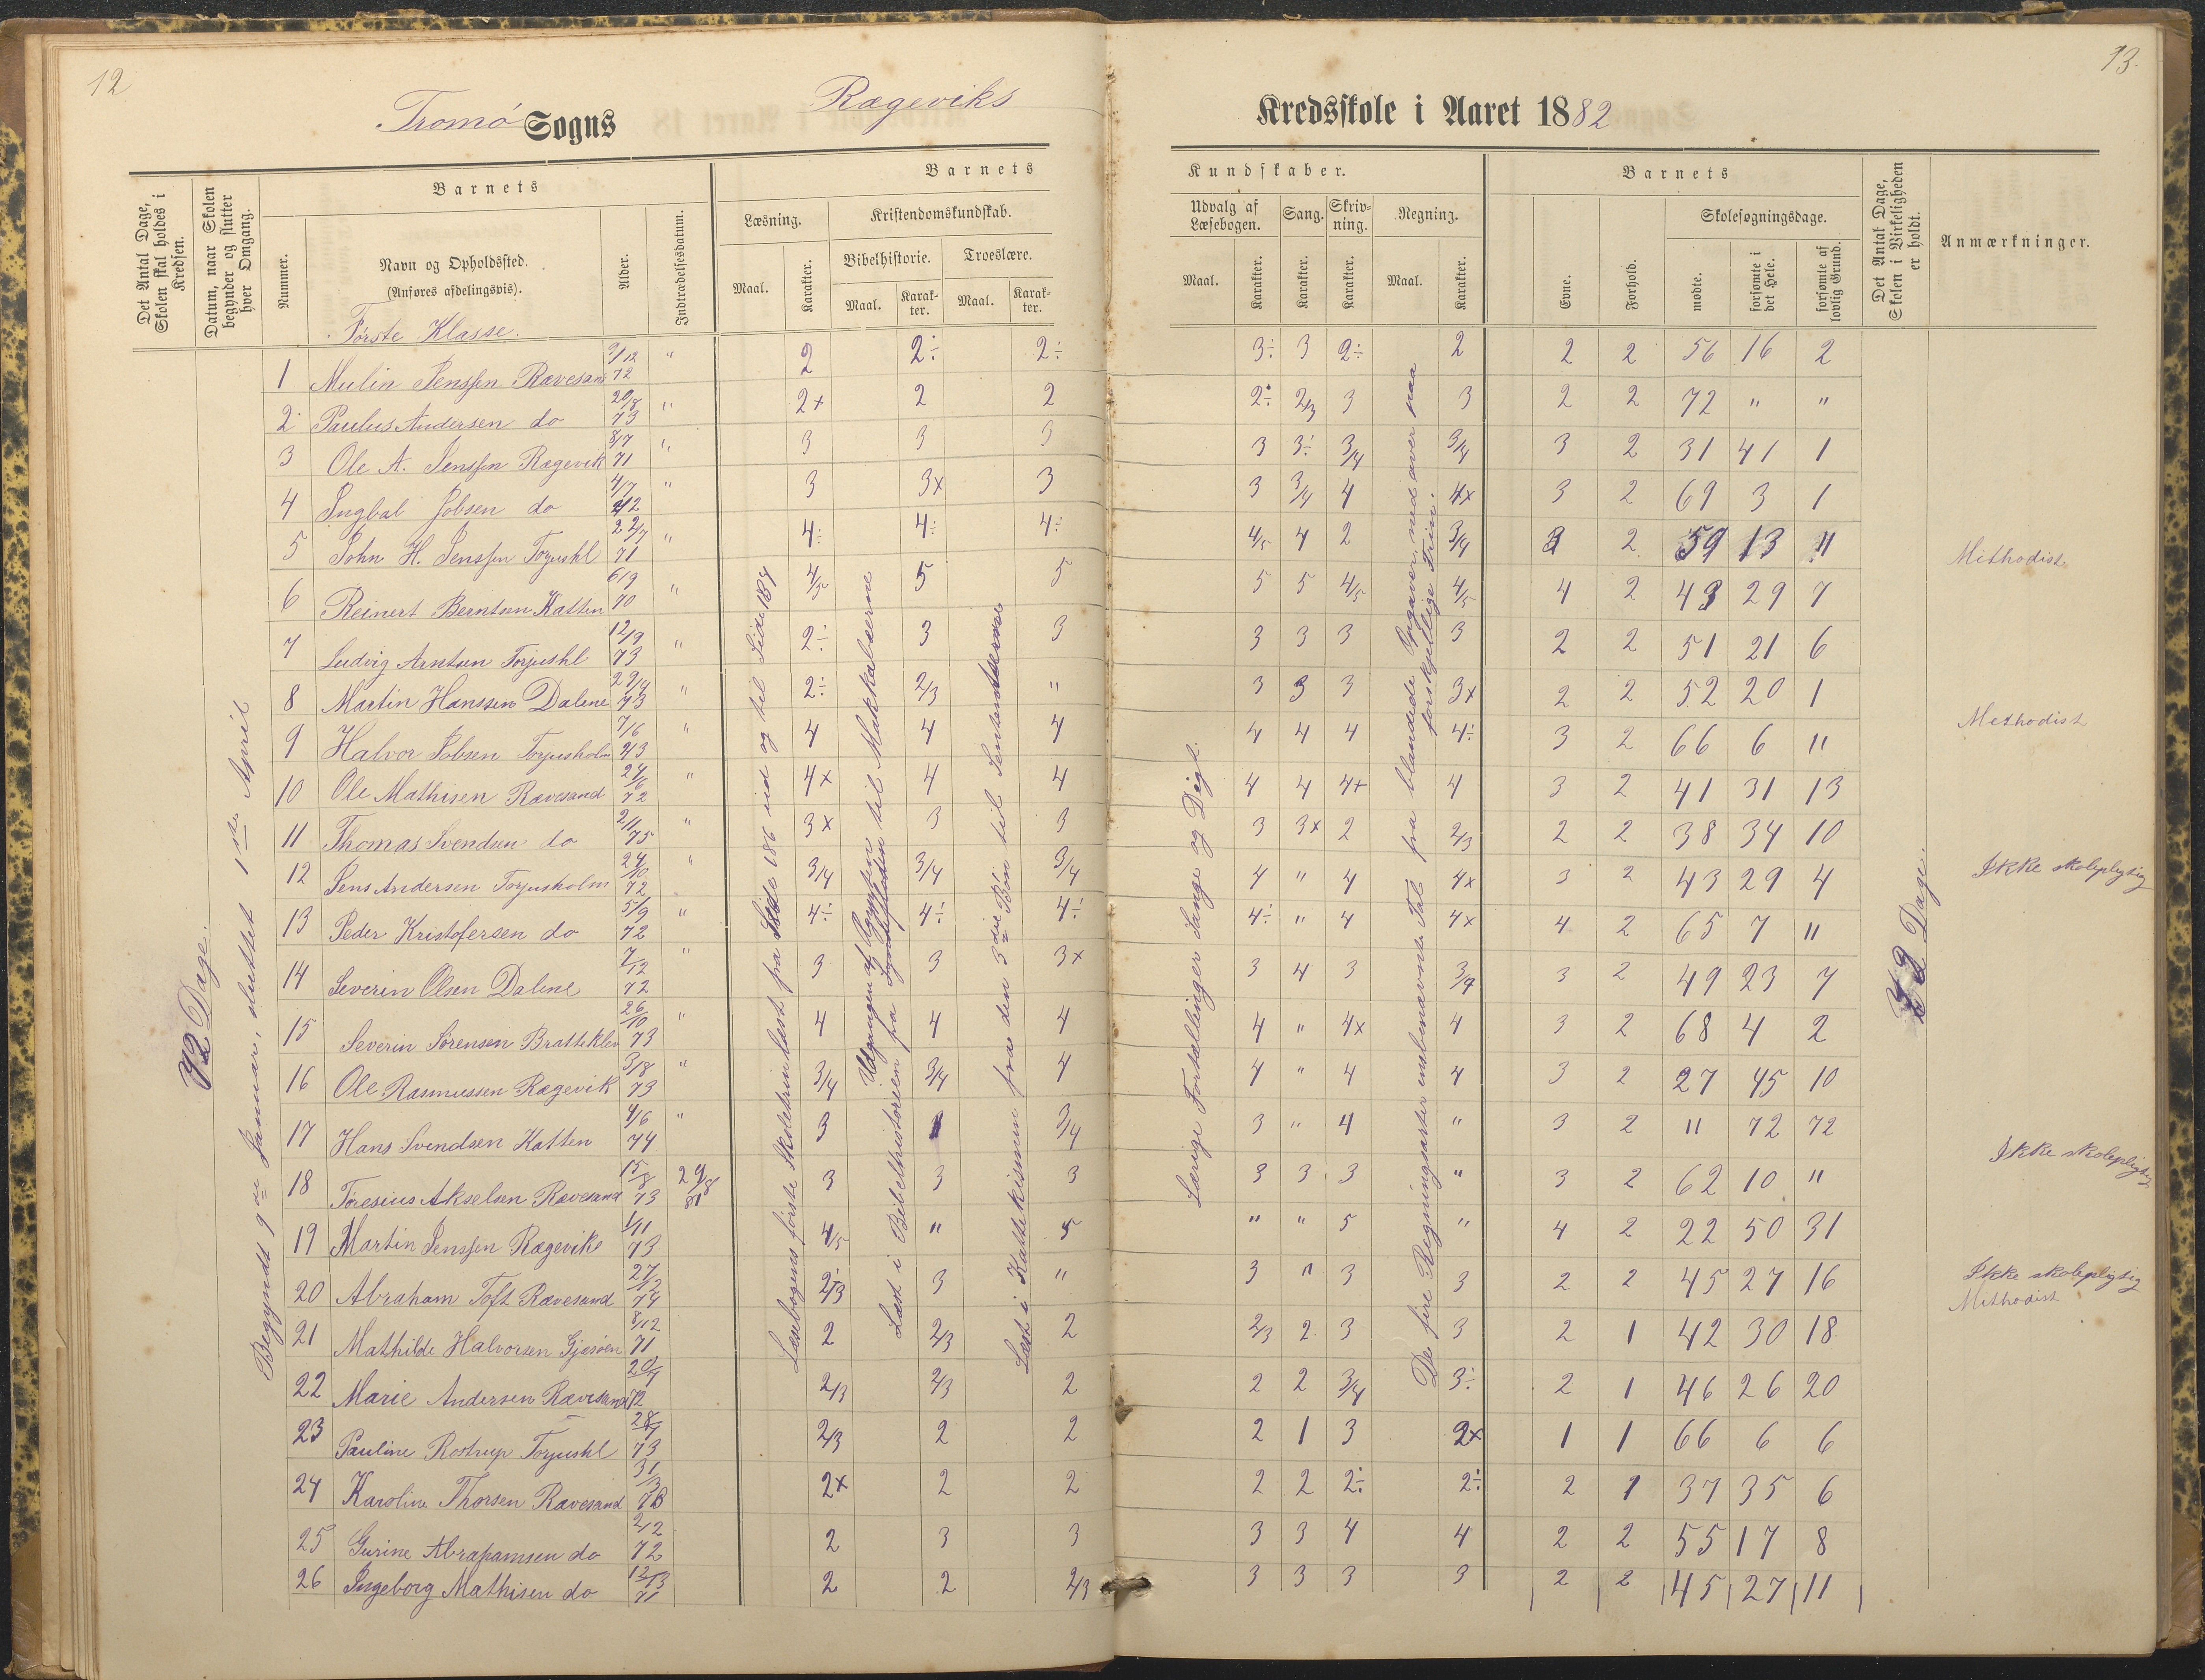 12
13.
Tromø Sogns Rægeviks Kredsskole i Aaret 1882
Det Antal Dage, Skolen skal holdes i Kredsen.
Datum, naar Skolen begynder og slutter hver Omgang.
Barnets
Nummer.
Navn og Opholdssted.
(Anføres afdelingsvis).
Alder.
Indtrædelsesdatum.
Barnets Kundskaber.
Læsning.
Maal.
Karakter.
Kristendomskundskab.
Bibelhistorie.
Maal.
Karakter.
Troeslære.
Maal.
Karakter.
Udvalg af Læsebogen.
Maal.
Karakter.
Sang.
Karakter.
Skrivning.
Karakter.
Regning.
Maal.
Karakter.
Barnets
Evne.
Forhold.
Skolesøgningsdage.
mødte.
forsømte i det Hele.
forsømte af lovlig Grund.
Det Antal Dage, Skolen i Virkeligheden er holdt.
Anmærkninger.
Første Klasse.
72 Dage.
Begyndt 9de Januar, sluttet 1ste April
Læsebogens første Skoletrin læst fra Side 186 ud og til Side 184
Læst i Bibelhistorien fra Udgangen af Ægypten til Makkabæerne
Læst i Kattekismen fra den 3die Bøn til
Lærige Fortællinger Sange og Digt.
De fire Regningsarter ensbenævnte Tal fra blandede Opgaver nedover paa forskjellige Trin.
72 Dage.
1 Mulin Jensen Rævesand 9/12 72 " 2 2÷ 2÷ 3÷ 3 2÷ 2 2 2 56 16 2
2 Paulus Andersen do 20/8 73 " 2+ 2 2 2÷ 2/3 3 3 2 2 72 " "
3 Ole A. Jensen Rægevik 8/7 71 " 3 3 3 3 3÷ 3/4 3/4 3 2 31 41 1
4 Ingbal Jobsen do 4/7 72 " 3 3x 3 3 3/4 4 4x 3 2 69 3 1
5 John H. Jensen Torjushl 22/7 71 " 4÷ 4÷ 4÷ 4/5 4 2 3/4 3 2 59 13 "
Methodist
6 Reinert Berntsen Katten 6/9 70 " 4/5 5 5 5 5 4/5 4/5 4 2 43 29 7
7 Ludvig Arntsen Torjushl 12/9 73 " 2÷ 3 3 3 3 3 3 2 2 51 21 6
8 Martin Hanssen Dalene 73 " 2÷ 2/3 " 3 3 3 3x 2 2 52 20 1
Methodist
9 Halvor Jobsen Torjusholm 7/6 73 " 4 4 4 4 4 4 4÷ 3 2 66 6 "
10 Ole Mathisen Rævesand 24/6 72 " 4x 4 4 4 4 4+ 4 3 2 41 31 13
11 Thomas Svendsen do 2/1 75 " 3x 3 3 3 3x 2 2/3 2 2 38 34 10
Ikke skolepligtig
12 Jens Andersen Torjusholm 24/10 72 " 3/4 3/4 3/4 4 " 4 4x 3 2 43 29 4
13 Peder Kristofersen do 5/9 72 " 4÷ 4÷ 4÷ 4÷ " 4 4x 4 2 65 7 "
14 Severin Olsen Dalene 7/12 72 " 3 3 3x 3 4 3 3/4 3 2 49 23 7
15 Severin Sørensen Bratteklev 26/10 73 " 4 4 4 4 " 4x 4 3 2 68 4 2
16 Ole Rasmussen Rægevik 3/8 73 " 3/4 3/4 4 4 " 4 4 3 2 27 45 10
17 Hans Svendsen Katten 4/6 74 " 3 1 3/4 3 " 4 " 3 2 " 72 72
Ikke skolepligtig
18 Toresius Akselsen Rævesand 15/8 73 29/8 81 3 3 3 3 3 3 " 3 2 62 10 "
19 Martin Jensen Rægeviks 1/11 73 4/5 " 5 " " 5 " 4 2 22 50 31
20 Abraham Toft Rævesand 27/12 74 2/3 3 " 3 " 3 3 2 2 45 27 16
Ikke skolepligtig
Methodist
21 Mathilde Halvorsen Gjesøen 8/12 71 2 2/3 2 2/3 2 3 3 2 1 42 30 18
22 Marie Andersen Rævesand 72 2/3 2/3 2 2 2 3/4 3÷ 2 1 46 26 20
23 Pauline Rostrup Torjushl 73 2/3 2 2 2 1 3 2x 1 1 66 6 6
24 Karoline Thorsen Rævesand 31/3 73 2x 2 2 2 2 2÷ 2÷ 2 1 37 35 6
25 Gurine Abrahamsen do 2/12 72 2 3 3 3 3 4 4 2 2 55 17 8
26 Ingeborg Mathisen do 71 2 2 2/3 3 3 3 3 2 2 45 27 11